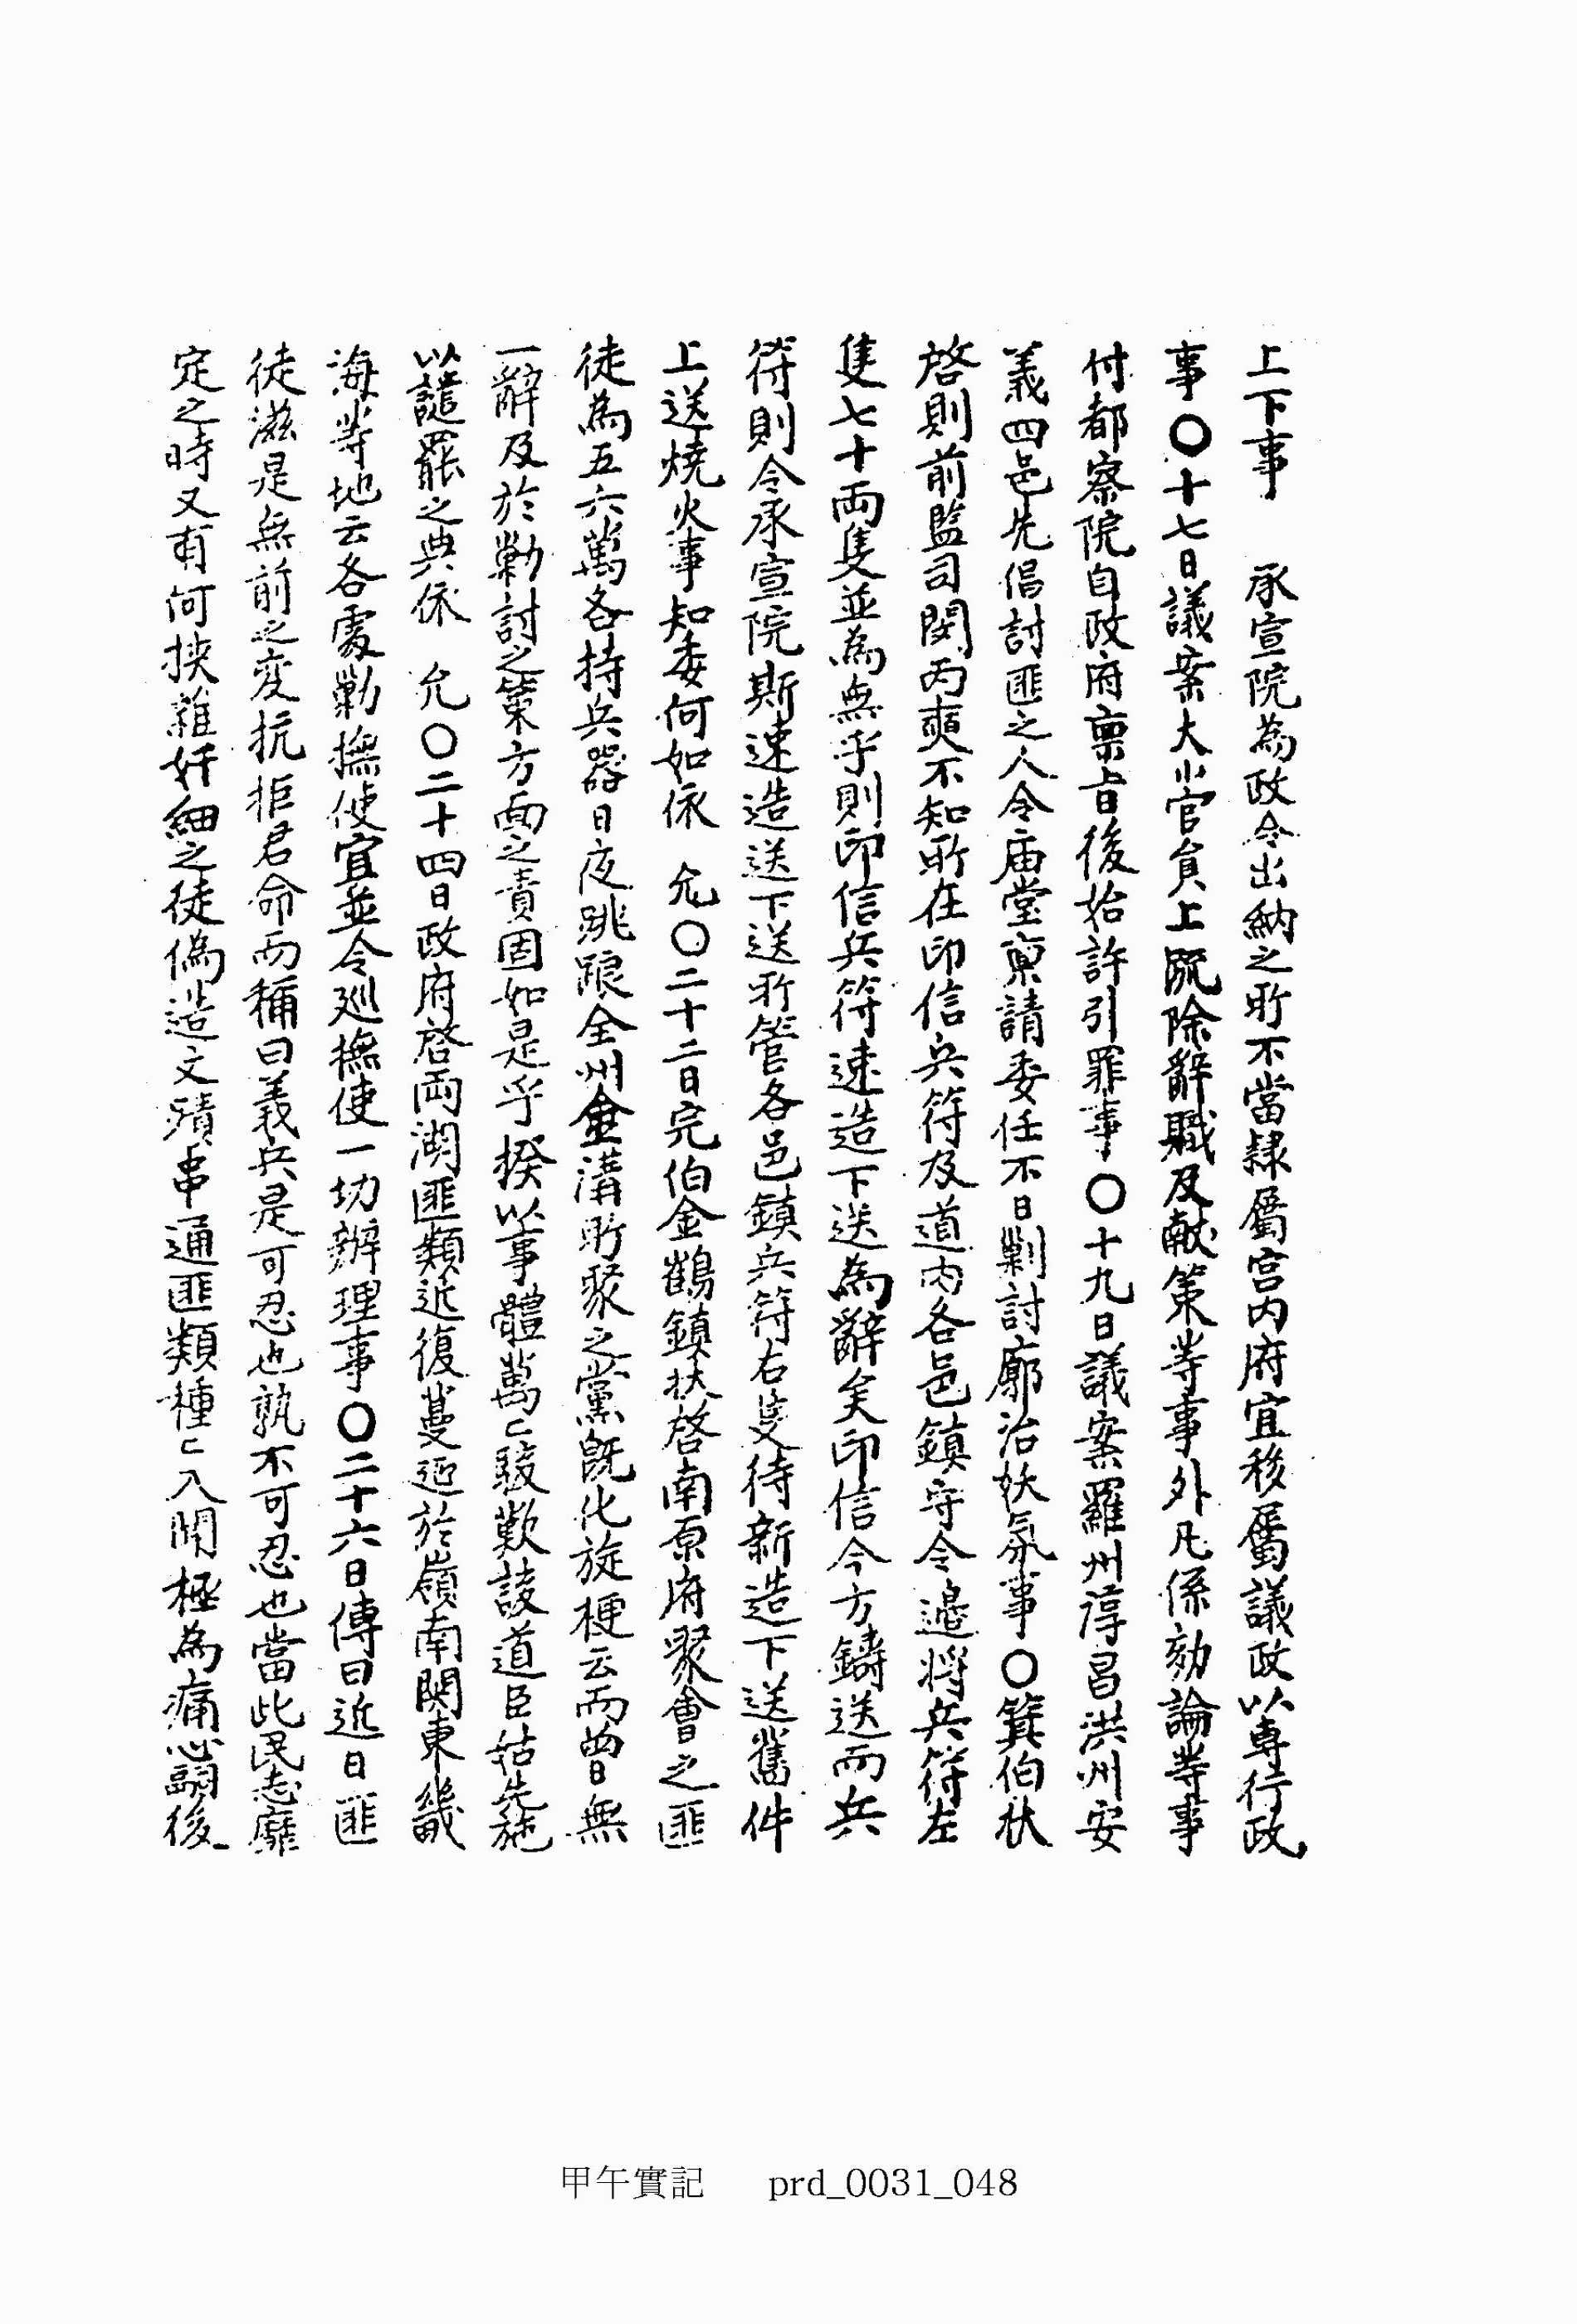 上下事　承宣院為政令出納之所不當隸屬宮內府宜移屬議政以專行政
事〇十七日議案大小官員上疏除辭職及獻策等事外凡係劾論等事
付都察院自政府稟旨後始許引罪事〇十九日議案羅州淳昌洪州安
義四邑先倡討匪之人令廟堂稟請委任不日剿討廓治妖氛事〇箕伯狀
啓則前監司閔丙奭不知所在印信兵符及道內各邑鎮守令邊將兵符左
隻七十兩隻並為無乎則印信兵符速造下送為辭矣印信今方鑄送而兵
符則令承宣院斯速造送下送所管各邑鎮兵符右隻待新造下送舊件
上送燒火事知委何如依　允〇二十二日完伯金鶴鎮狀啓南原府聚會之匪
徒為五六萬各持兵器日夜跳踉全州金溝所聚之黨既化旋梗云而曾無
一辭及於勦討之策方面之責固如是乎揆以事體萬〻駭歎該道臣姑先施
以譴罷之典依　允〇二十四日政府啓兩湖匪類近復蔓延於嶺南関東畿
海等地云各處勦撫使宜並令廵撫使一切辦理事〇二十六日傳曰近日匪
徒滋是無前之変抗拒君命而稱曰義兵是可忍也孰不可忍也當此民志靡
定之時又有何挾雜奸細之徒偽造文蹟串通匪類種〻入聞極為痛心嗣後
甲午實記　prd_0031_048